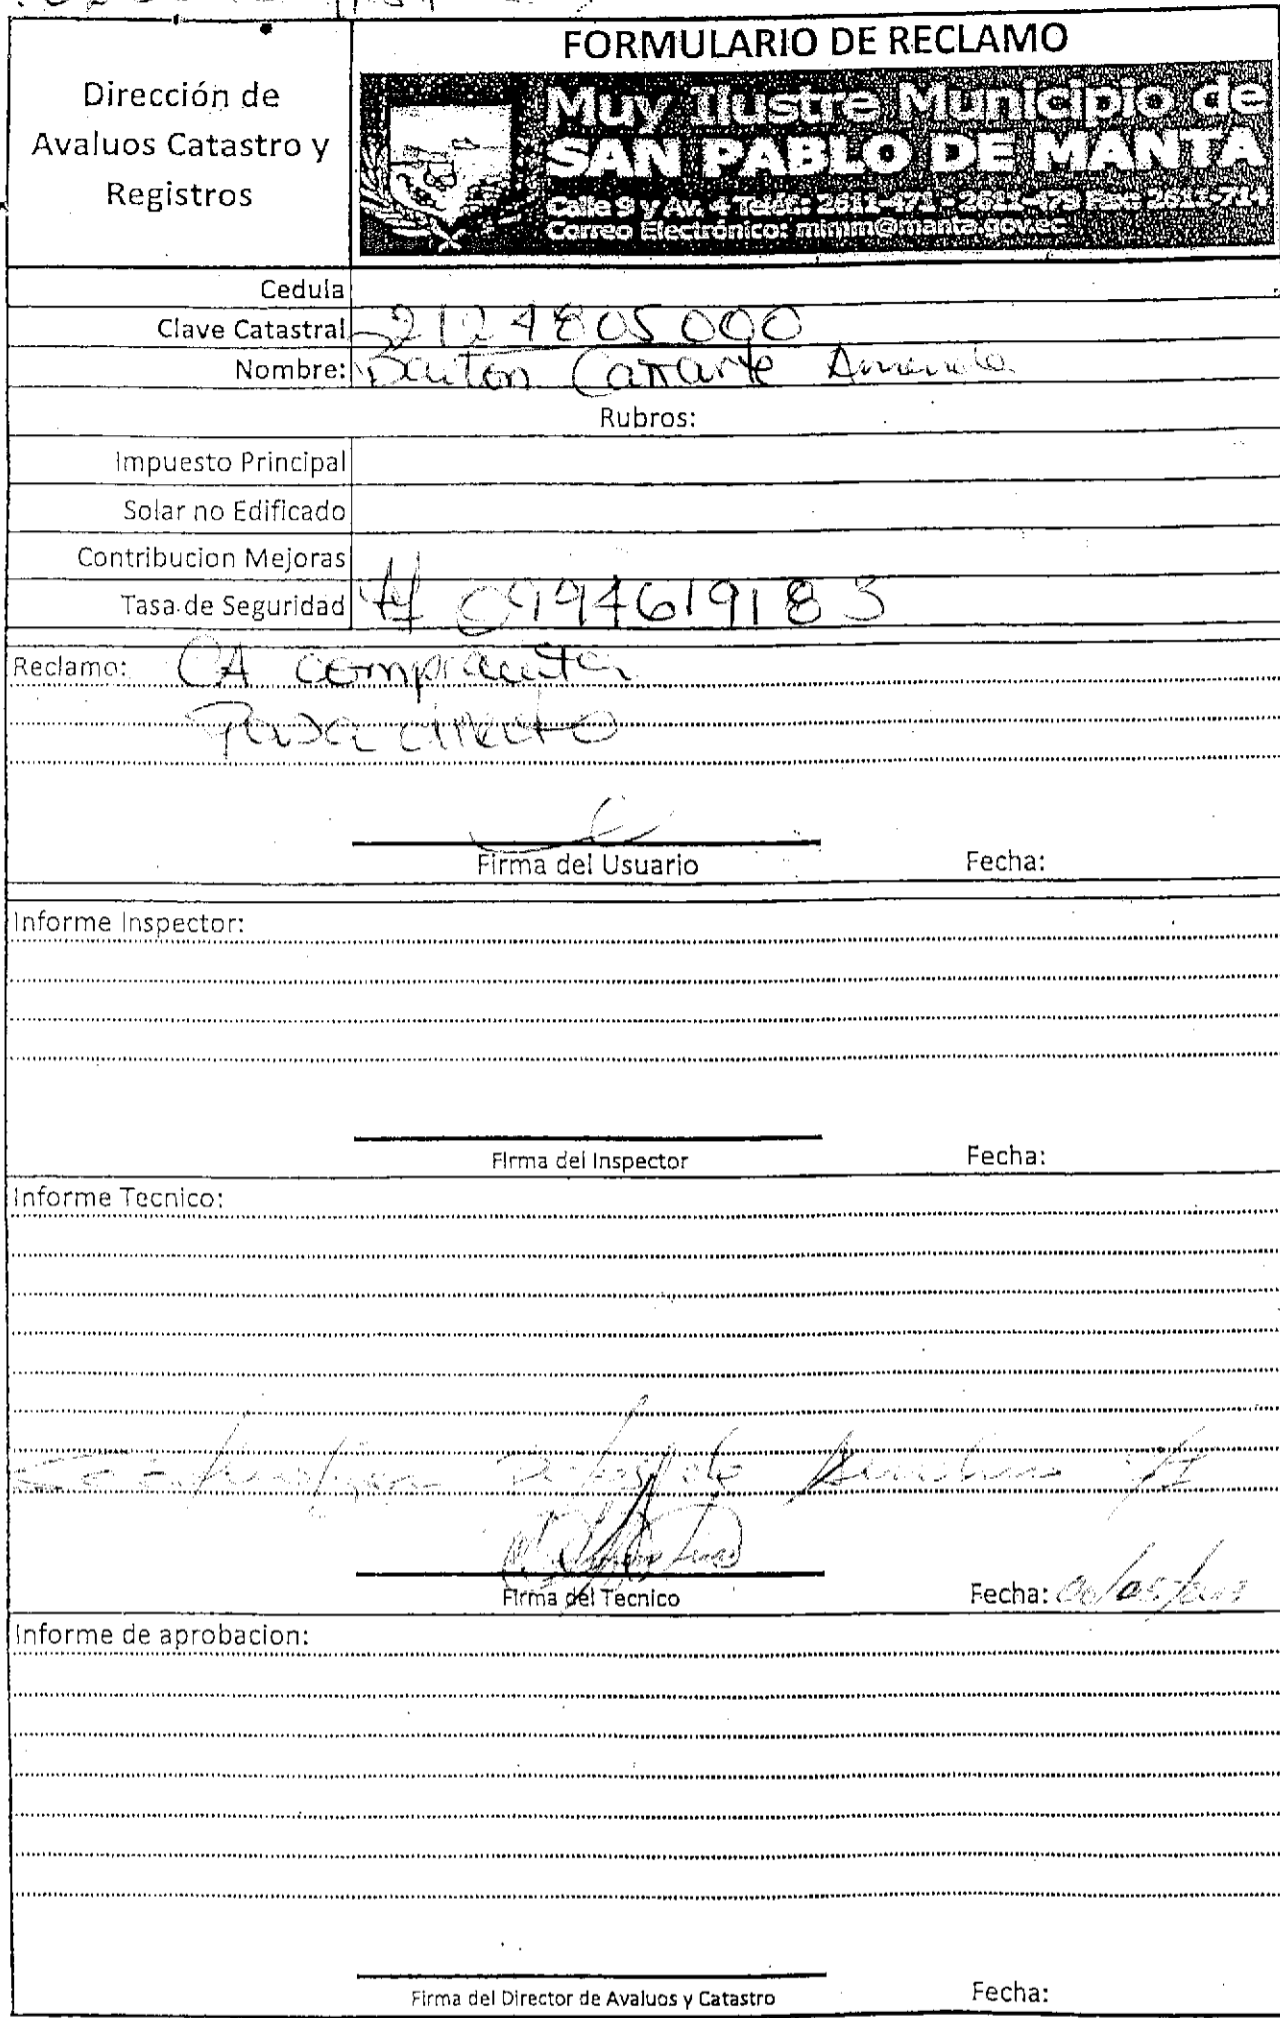 FORMULARIO DE RECLAMO
Dirección de
Avaluos Catastro y
Registros
Muy Ilustre Municipio de
SAN PABLO DE MANTA
Calle 9 y Av. 4 Telef.: 2611-471 - 2611-479 Fax: 2611-714
Correo Electrónico: mimm@manta.gov.ec
Cedula
Clave Catastral 2124805000
Nombre:
Rubros:
Impuesto Principal
Solar no Edificado
Contribucion Mejoras
Tasa de Seguridad # 0994619183
Reclamo: CA
Firma del Usuario Fecha:
Informe Inspector:
Firma del Inspector Fecha:
Informe Tecnico:
Firma del Tecnico Fecha:
Informe de aprobacion:
Firma del Director de Avaluos y Catastro Fecha: